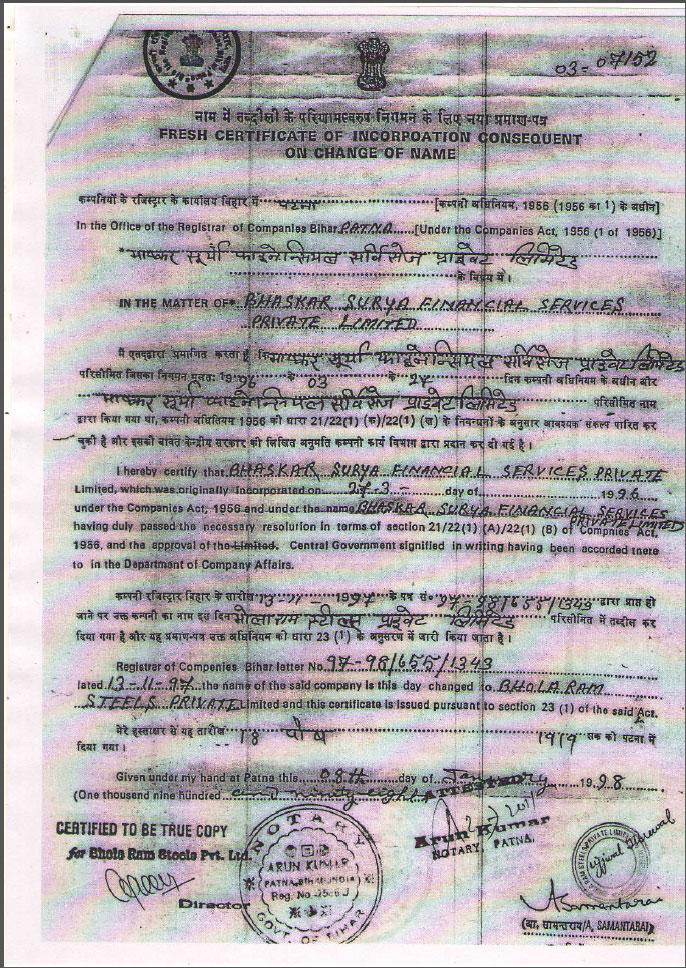 03-07152
नाम में तब्दीली के परिणामस्वरूप निगमन के लिए नया प्रमाण-पत्र
FRESH CERTIFICATE OF INCORPOATION CONSEQUENT
ON CHANGE OF NAME
कम्पनियों के रजिस्ट्रार के कार्यालय बिहार में पटना [कम्पनी अधिनियम, 1956 (1956 का 1) के अधीन]
In the Office of the Registrar of Companies Bihar PATNA [Under the Companies Act, 1956 (1 of 1956)]
भास्कर सूर्या फाइनेन्सियल सर्विसेज प्राइवेट लिमिटेड
के विषय में।
IN THE MATTER OF* BHASKAR SURYA FINANCIAL SERVICES
PRIVATE LIMITED
मैं एतद्द्वारा प्रमाणित करता हूँ कि भास्कर सूर्या फाइनेन्सियल सर्विसेज प्राइवेट लिमिटेड
परिसीमित जिसका निगमन मूलतः 1996 के 03 के 27 दिन कम्पनी अधिनियम के अधीन और
भास्कर सूर्या फाइनेन्सियल सर्विसेज प्राइवेट लिमिटेड परिसीमित नाम
द्वारा किया गया था, कम्पनी अधिनियम 1956 की धारा 21/22(1) (क)/22(1) (ख) के नियन्धनों के अनुसार आवश्यक संकल्प पारित कर
चुकी है और इसकी बाबत केन्द्रीय सरकार की लिखित अनुमति कम्पनी कार्य विभाग द्वारा प्रदान कर दी गई है।
I hereby certify that BHASKAR SURYA FINANCIAL SERVICES PRIVATE
Limited, which was originally incorporated on 27-3- day of 1996
under the Companies Act, 1956 and under the name BHASKAR SURYA FINANCIAL SERVICES
PRIVATE LIMITED
having duly passed the necessary resolution in terms of section 21/22(1) (A)/22(1) (B) of Compnies Act.
1956, and the approval of the Limited. Central Government signified in writing having been accorded there
to in the Department of Company Affairs.
कम्पनी रजिस्ट्रार बिहार के तारीख 13-11-1997 के पत्र सं० 97-98/655/1343 द्वारा प्राप्त हो
जाने पर उक्त कम्पनी का नाम इस दिन भोलाराम स्टील्स प्राइवेट लिमिटेड परिसीमित में तब्दील कर
दिया गया है और यह प्रमाण-पत्र उक्त अधिनियम की धारा 23 (1) के अनुसरण में जारी किया जाता है।
Registrar of Companies Bihar letter No 97-98/655/1343
lated 13-11-97 the name of the said company is this day changed to BHOLARAM
STEELS PRIVATE Limited and this certificate is issued pursuant to section 23 (1) of the said Act.
मेरे हस्ताक्षर से यह तारीख 18 पौष 1919 सक को पटना में
दिया गया।
Given under my hand at Patna this 08th day of January 1998
(One thousand nine hundred and ninety eight
ATTESTED
Arun Kumar
NOTARY, PATNA.
CERTIFIED TO BE TRUE COPY
for Bhola Ram Steels Pvt. Ltd.
Director
NOTARY
ARUN KUMAR
PATNA, BIHAR (INDIA)
GOVT. OF BIHAR
A Samantarai
(वा. सामन्तराय/A, SAMANTARAI)